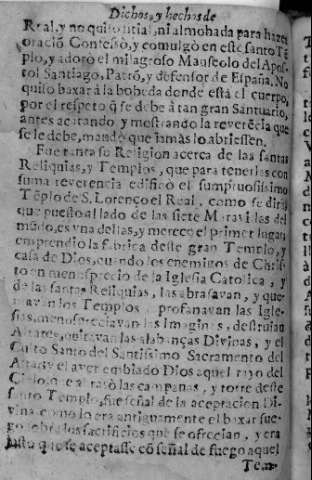 Dichos, y hechos de
Real, y no quiso sitial, ni almohada para hazer
oració. Confessò, y comulgò en este santo Tē
plo, y adorò el milagroso Mauseolo del Apos-
tol Santiago, Patrō, y defensor de España. No
quiso baxar à la bobeda donde està el cuerpo,
por el respeto q̃ se debe à tan gran Santuario,
antes acatando, y mostrando la reverēcia que
se le debe, mandò que jamàs lo abriessen.
Fue tanta su Religion acerca de las santas
Reliquias, y Templos, que para tenerlas con
suma reverencia edificò el sumptuosissimo
Tēplo de S. Lorenço el Real, como se dirà,
que puesto al lado de las siete Maravillas del
mūdo, es vna dellas, y merece el primer lugar:
emprendio la fabrica deste gran Templo, y
casa de Dios, quando los enemigos de Chris-
to en menosprecio de la Iglesia Catolica, y
de las santas Reliquias, las abrasavan, y que-
mavan los Templos, profanavan las Igle-
sias, menospreciavan las Imagines, destruian
Altares, quitavan las alabanças Divinas, y el
Culto Santo del Santissimo Sacramento del
Altar: y el aver embiado Dios aquel rayo del
Cielo, que abrasò las campanas, y torre deste
santo Templo, fue señal de la aceptacion Di-
vina, como lo era antiguamente el baxar fue-
go sobre los sacrificios que se ofrecian, y era
justo que se aceptasse cō señal de fuego aquel
Tem-